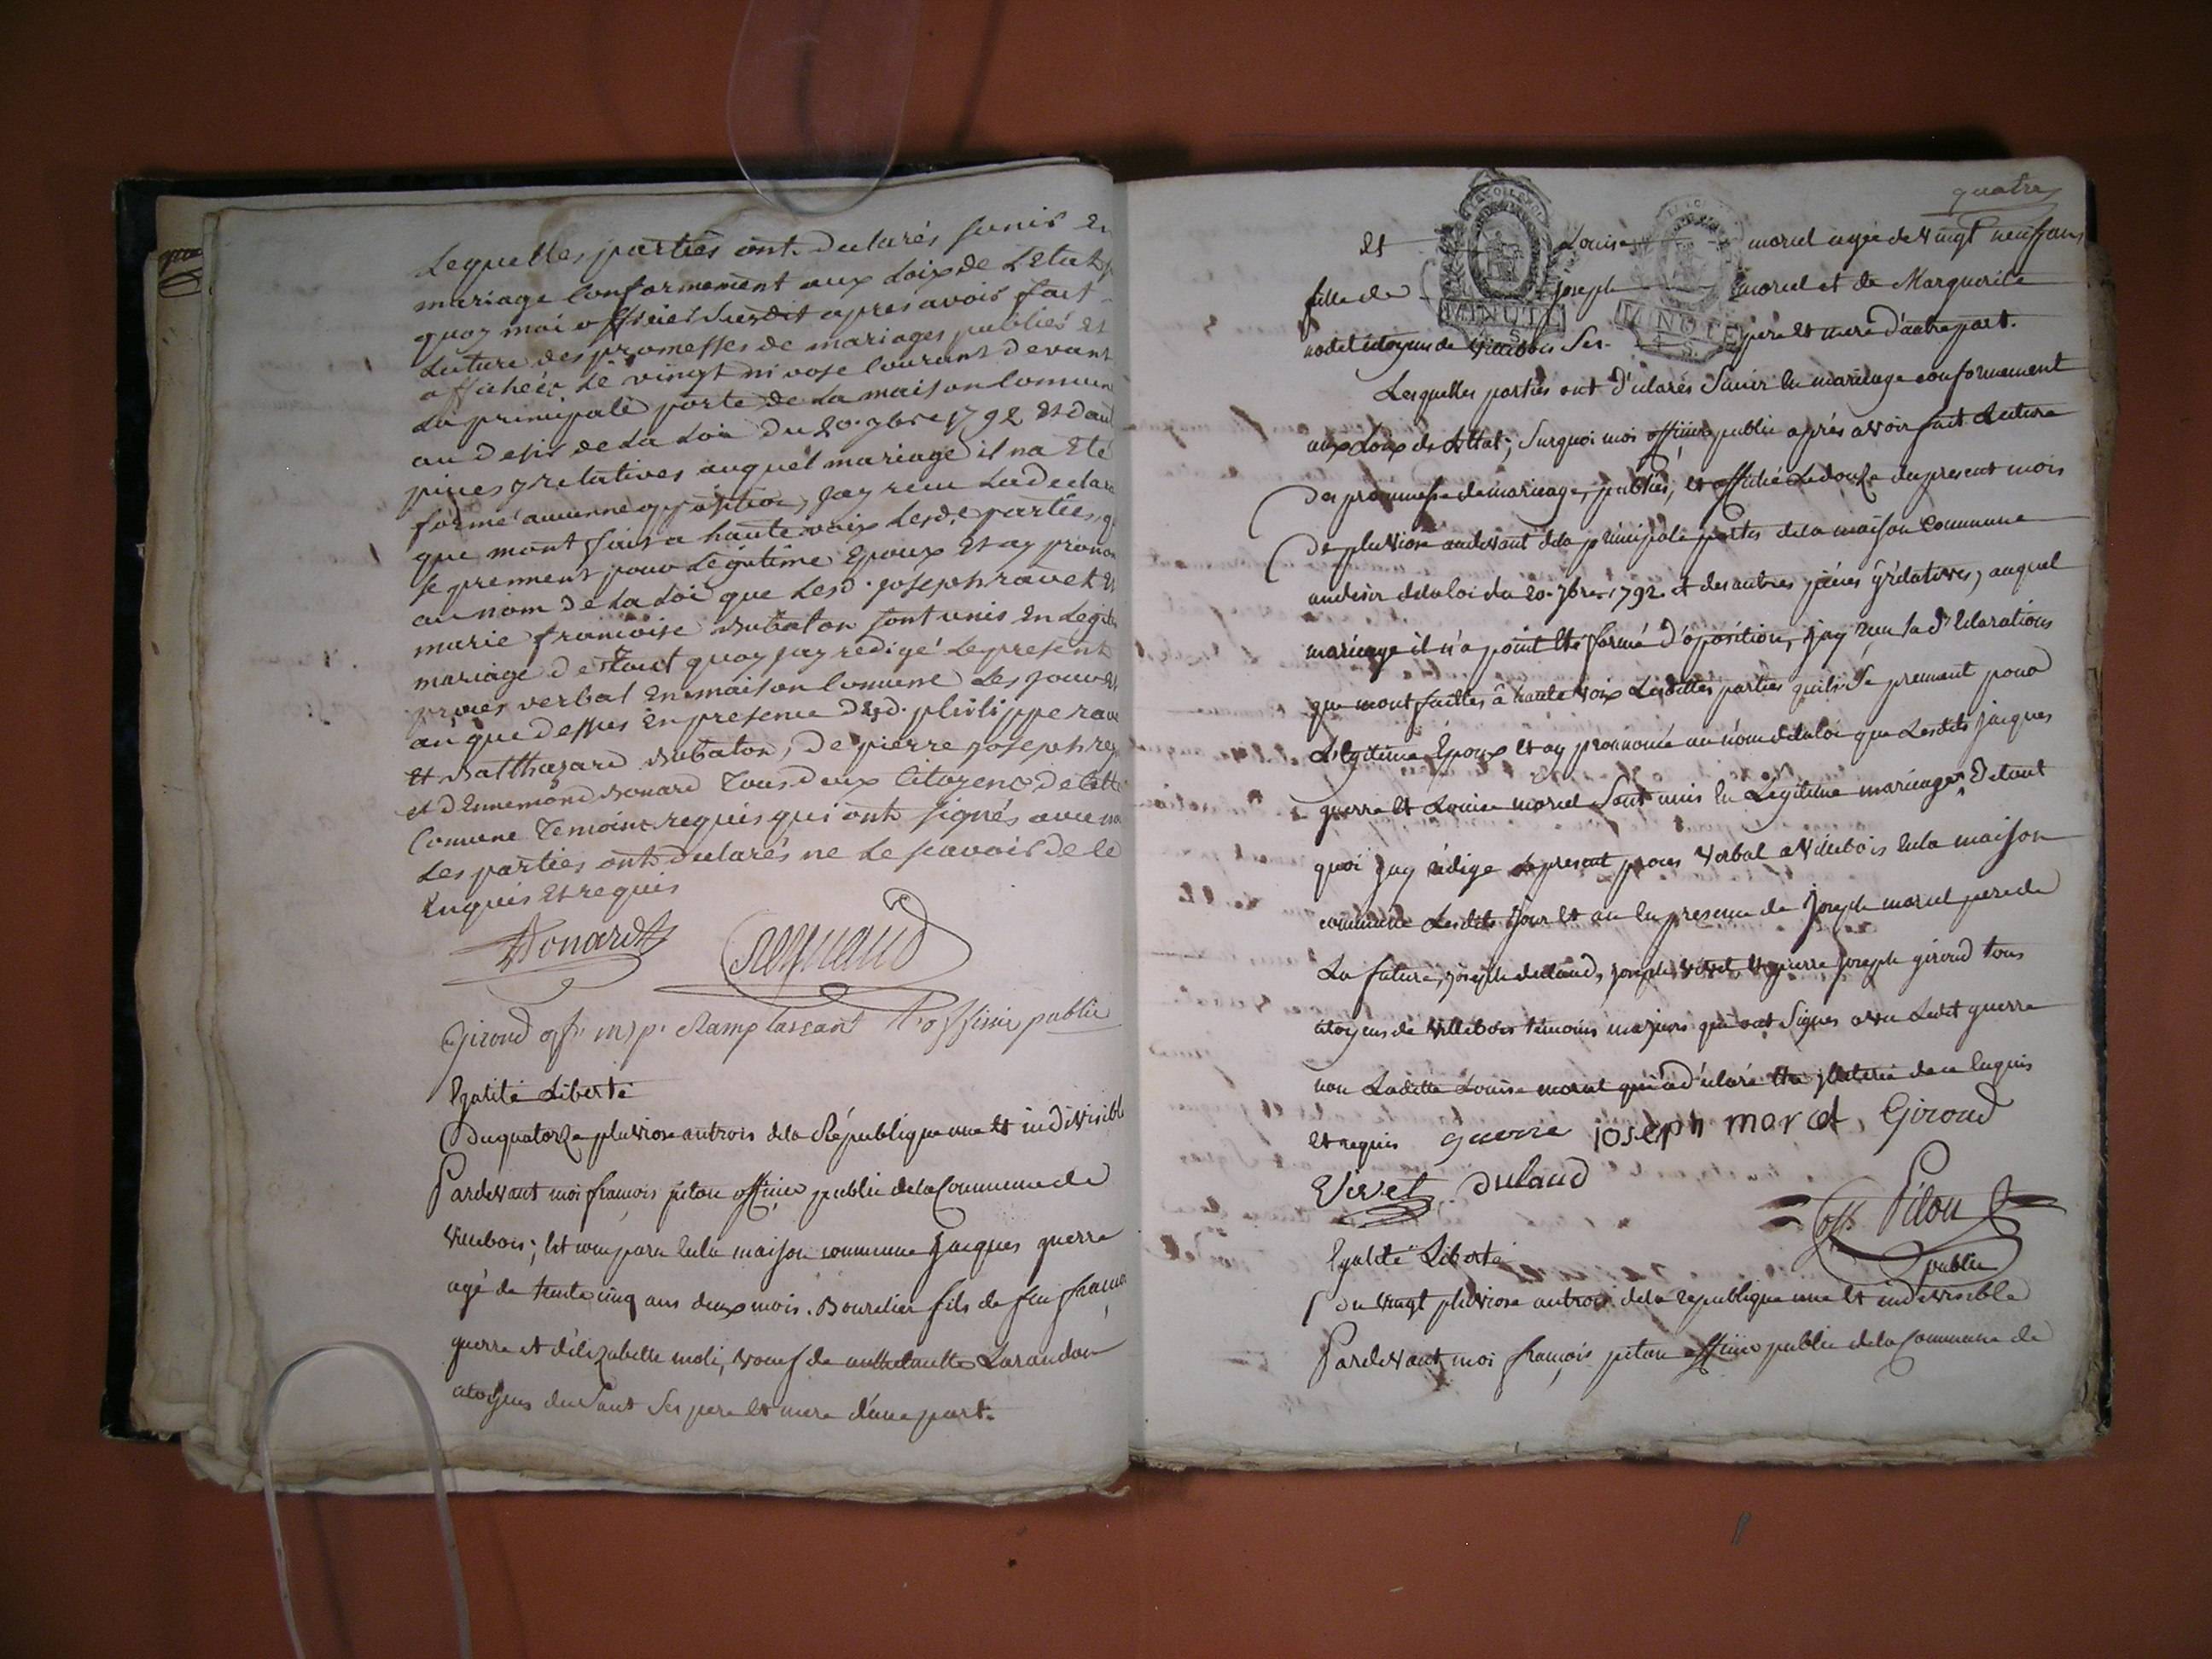 Lequelles parties ont declarés sunir en
mariage Conformement aux Loix de Letat
quoy moi officier Susdit apres avoir fait
Lecture des promesses de mariages publiés et
affichées Le vingt nivose Courant devant
La principale porte de La maison Comune
au desir de La Loi Du 20. 7bre 1792 et d'aut
pieces y relatives auquel mariage il na Eté
formé aucunne opposition, jay recu La declara
que mont fait a haute voix Lesd. parties, q
se prennent pour Legitime Epoux et ay pronon
au nom de La Loi que Lesd. joseph ravet et
marie francoise Bubaton sont unis en Legiti
mariage de Tout quoy jay redigé Le present
proces verbal en maison Comune Les jour et
an que dessus en presence desd. philippe rave
et Balthazard Bubaton, de pierre joseph rey
et d'Ennemond Bonard Tous deux Citoyens de Cette
Comune Temoins requis qui ont signés avec moi
Les parties ont declarés ne Le scavoir de ce
enquis et requis
Bonard Reynaud
Giroud off. mpl. Ramplassant L'officier public
Egalité Liberté
Du quatorze pluviose an trois dela République une et indivisible
Pardevant moi françois pitou officier public dela Commune de
villebois; est comparu en la maison commune Jacques guerre
agé de trente cinq ans deux mois. Bourelier fils de feu françois
guerre et d'élizabette moli, voeuf de Larandon
citoyens du Saut Ses pere et mere d'une part.
quatre
et Louise morel agée de vingt neuf ans
fille de joseph morel et de Marguerite
nodet citoyens de villebois Ses pere et mere d'autre part.
MINUTE MINUTE
Lesquelles parties ont d'eclarés S'unir en mariage conformement
aux Loix de l'Etat; Surquoi moi officier public aprés avoir fait Lecture
des promesse de mariage, publiés, et affiché Le douze du present mois
de pluviose audevant dela principale portes dela maison Commune
audesir dela loi du 20. 7bre 1792. et des autres piéces y rélatives, auquel
mariage il n'a point Eté formé d'oposition, j'ay recu la d'éclarations
que mont faittes à haute voix Lesdittes parties quils Se prennent pour
Légitime Epoux et ay prononcé au nom dela loi que Lesdits jacques
guerre et Louise morel Sont unis en Legitime mariage, De tout
quoi jay rédige Le present procés verbal a villebois en la maison
commune Lesdits jour et an en presence de Joseph morel pere de
La future, joseph dulaud, joseph vivet, et pierre joseph giroud tous
citoyens de villebois témoins majeurs qui ont Signés avec Ledit guerre
non Laditte Louise morel qui a d'éclaré etre illeterée de ce Enquis
et requis guerre joseph morel Giroud
Vivet Dulaud
off. Pitou
public
Egalité Liberté
Du vingt pluviose an trois dela republique une et indivisible
Pardevant moi françois pitou officier public dela Commune de